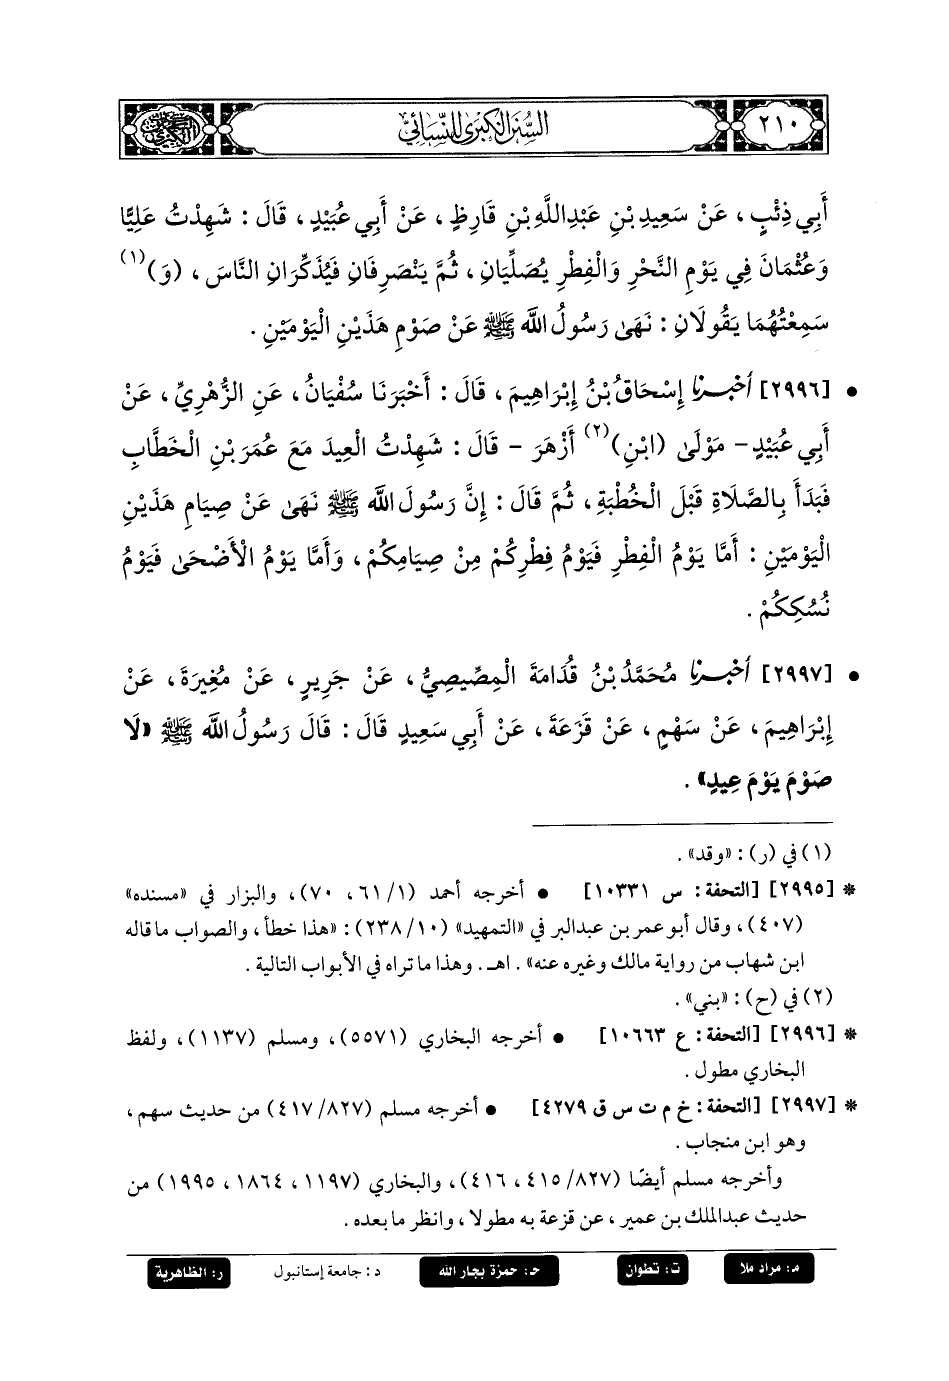 ٢١٠
السنن الكبرى للنسائي
أَبِي ذِئْبٍ، عَنْ سَعِيدِ بْنِ عَبْدِاللَّهِ بْنِ قَارِظٍ، عَنْ أَبِي عُبَيْدٍ، قَالَ: شَهِدْتُ عَلِيًّا
وَعُثْمَانَ فِي يَوْمِ النَّحْرِ وَالْفِطْرِ يُصَلِّيَانِ، ثُمَّ يَنْصَرِفَانِ فَيُذَكِّرَانِ النَّاسَ، (وَ)(١)
سَمِعْتُهُمَا يَقُولَانِ: نَهَىٰ رَسُولُ اللَّه ﷺ عَنْ صَوْمِ هَذَيْنِ الْيَوْمَيْنِ.
• [٢٩٩٦] أَخْبَرَنَا إِسْحَاقُ بْنُ إِبْرَاهِيمَ، قَالَ: أَخْبَرَنَا سُفْيَانُ، عَنِ الزُّهْرِيِّ، عَنْ
أَبِي عُبَيْدٍ - مَوْلَىٰ (ابْنِ)(٢) أَزْهَرَ - قَالَ: شَهِدْتُ الْعِيدَ مَعَ عُمَرَ بْنِ الْخَطَّابِ
فَبَدَأَ بِالصَّلَاةِ قَبْلَ الْخُطْبَةِ، ثُمَّ قَالَ: إِنَّ رَسُولَ اللَّه ﷺ نَهَىٰ عَنْ صِيَامِ هَذَيْنِ
الْيَوْمَيْنِ: أَمَّا يَوْمُ الْفِطْرِ فَيَوْمُ فِطْرِكُمْ مِنْ صِيَامِكُمْ، وَأَمَّا يَوْمُ الْأَضْحَىٰ فَيَوْمُ
نُسُكِكُمْ.
• [٢٩٩٧] أَخْبَرَنَا مُحَمَّدُ بْنُ قُدَامَةَ الْمِصِّيصِيُّ، عَنْ جَرِيرٍ، عَنْ مُغِيرَةَ، عَنْ
إِبْرَاهِيمَ، عَنْ سَهْمٍ، عَنْ قَزَعَةَ، عَنْ أَبِي سَعِيدٍ قَالَ: قَالَ رَسُولُ اللَّه ﷺ «لَا
صَوْمَ يَوْمَ عِيدٍ».
(١) في (ر): «وقد».
* [٢٩٩٥] [التحفة: س ١٠٣٣١] • أخرجه أحمد (١/ ٦١، ٧٠)، والبزار في «مسنده»
(٤٠٧)، وقال أبو عمر بن عبدالبر في «التمهيد» (١٠/ ٢٣٨): «هذا خطأ، والصواب ما قاله
ابن شهاب من رواية مالك وغيره عنه». اهـ. وهذا ما تراه في الأبواب التالية.
(٢) في (ح): «بني».
* [٢٩٩٦] [التحفة: ع ١٠٦٦٣] • أخرجه البخاري (٥٥٧١)، ومسلم (١١٣٧)، ولفظ
البخاري مطول.
* [٢٩٩٧] [التحفة: خ م ت س ق ٤٢٧٩] • أخرجه مسلم (٨٢٧/ ٤١٧) من حديث سهم،
وهو ابن منجاب.
وأخرجه مسلم أيضًا (٨٢٧/ ٤١٥، ٤١٦)، والبخاري (١١٩٧، ١٨٦٤، ١٩٩٥) من
حديث عبدالملك بن عمير، عن قزعة به مطولا، وانظر ما بعده.
مـ: مراد ملا ت: تطوان حـ: حمزة بجار الله د: جامعة إستانبول ر: الظاهرية